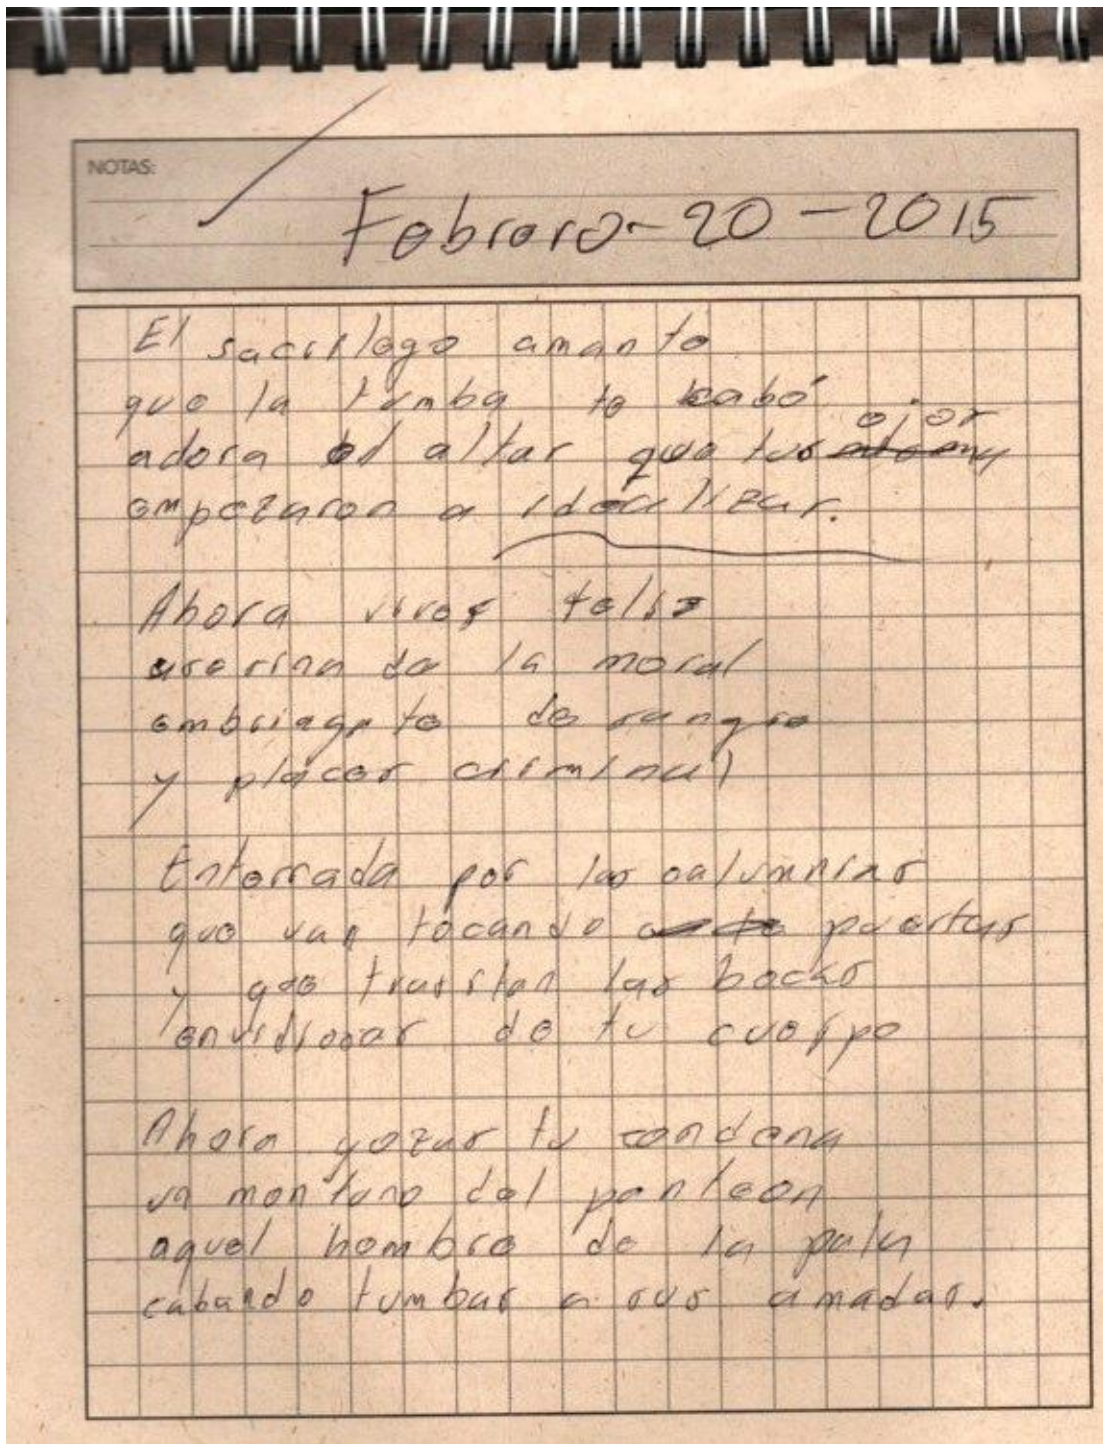 NOTAS:
Febrero-20-2015
El sacrílego amante
que la tumba te cabó
adora el altar que tus ojos
empezaron a idealizar.
Ahora vives feliz
asesina de la moral
embriagate de sangre
y plácer criminal
Enterrada por las calumnias
que van tocando puertas
y que trasslan las bocas
envidiosas de tu cuerpo
Ahora gozas tu condena
un montuno del panteon
aquel hombre de la pala
cabando tumbas a sus amadas.